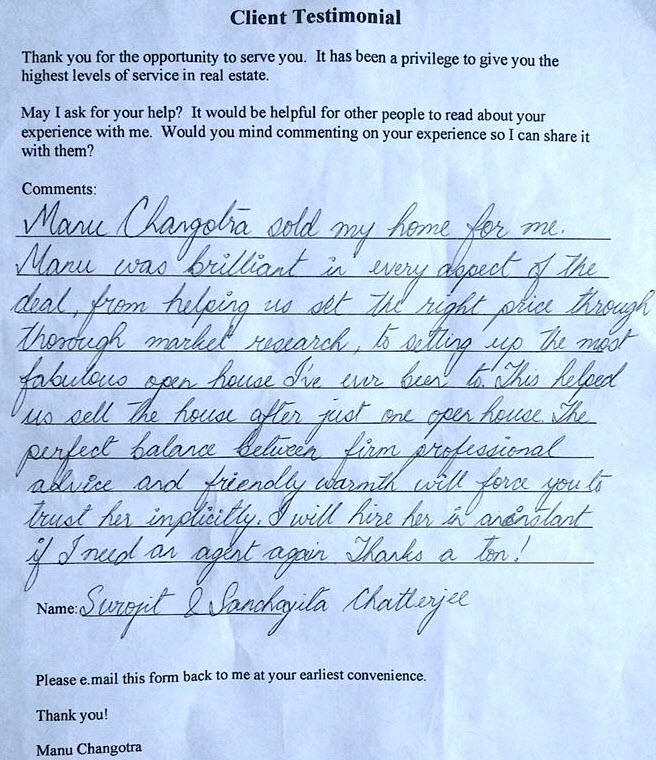 Client Testimonial
Thank you for the opportunity to serve you. It has been a privilege to give you the
highest levels of service in real estate.
May I ask for your help? It would be helpful for other people to read about your
experience with me. Would you mind commenting on your experience so I can share it
with them?
Comments:
Manu Changotra sold my home for me.
Manu was brilliant in every aspect of the
deal, from helping us set the right price through
thorough market research, to setting up the most
fabulous open house I've ever been to. This helped
us sell the house after just one open house. The
perfect balance between firm professional
advice and friendly warmth will force you to
trust her implicitly. I will hire her in an instant
if I need an agent again. Thanks a ton!
Name: Surojit & Sanchayita Chatterjee
Please e.mail this form back to me at your earliest convenience.
Thank you!
Manu Changotra